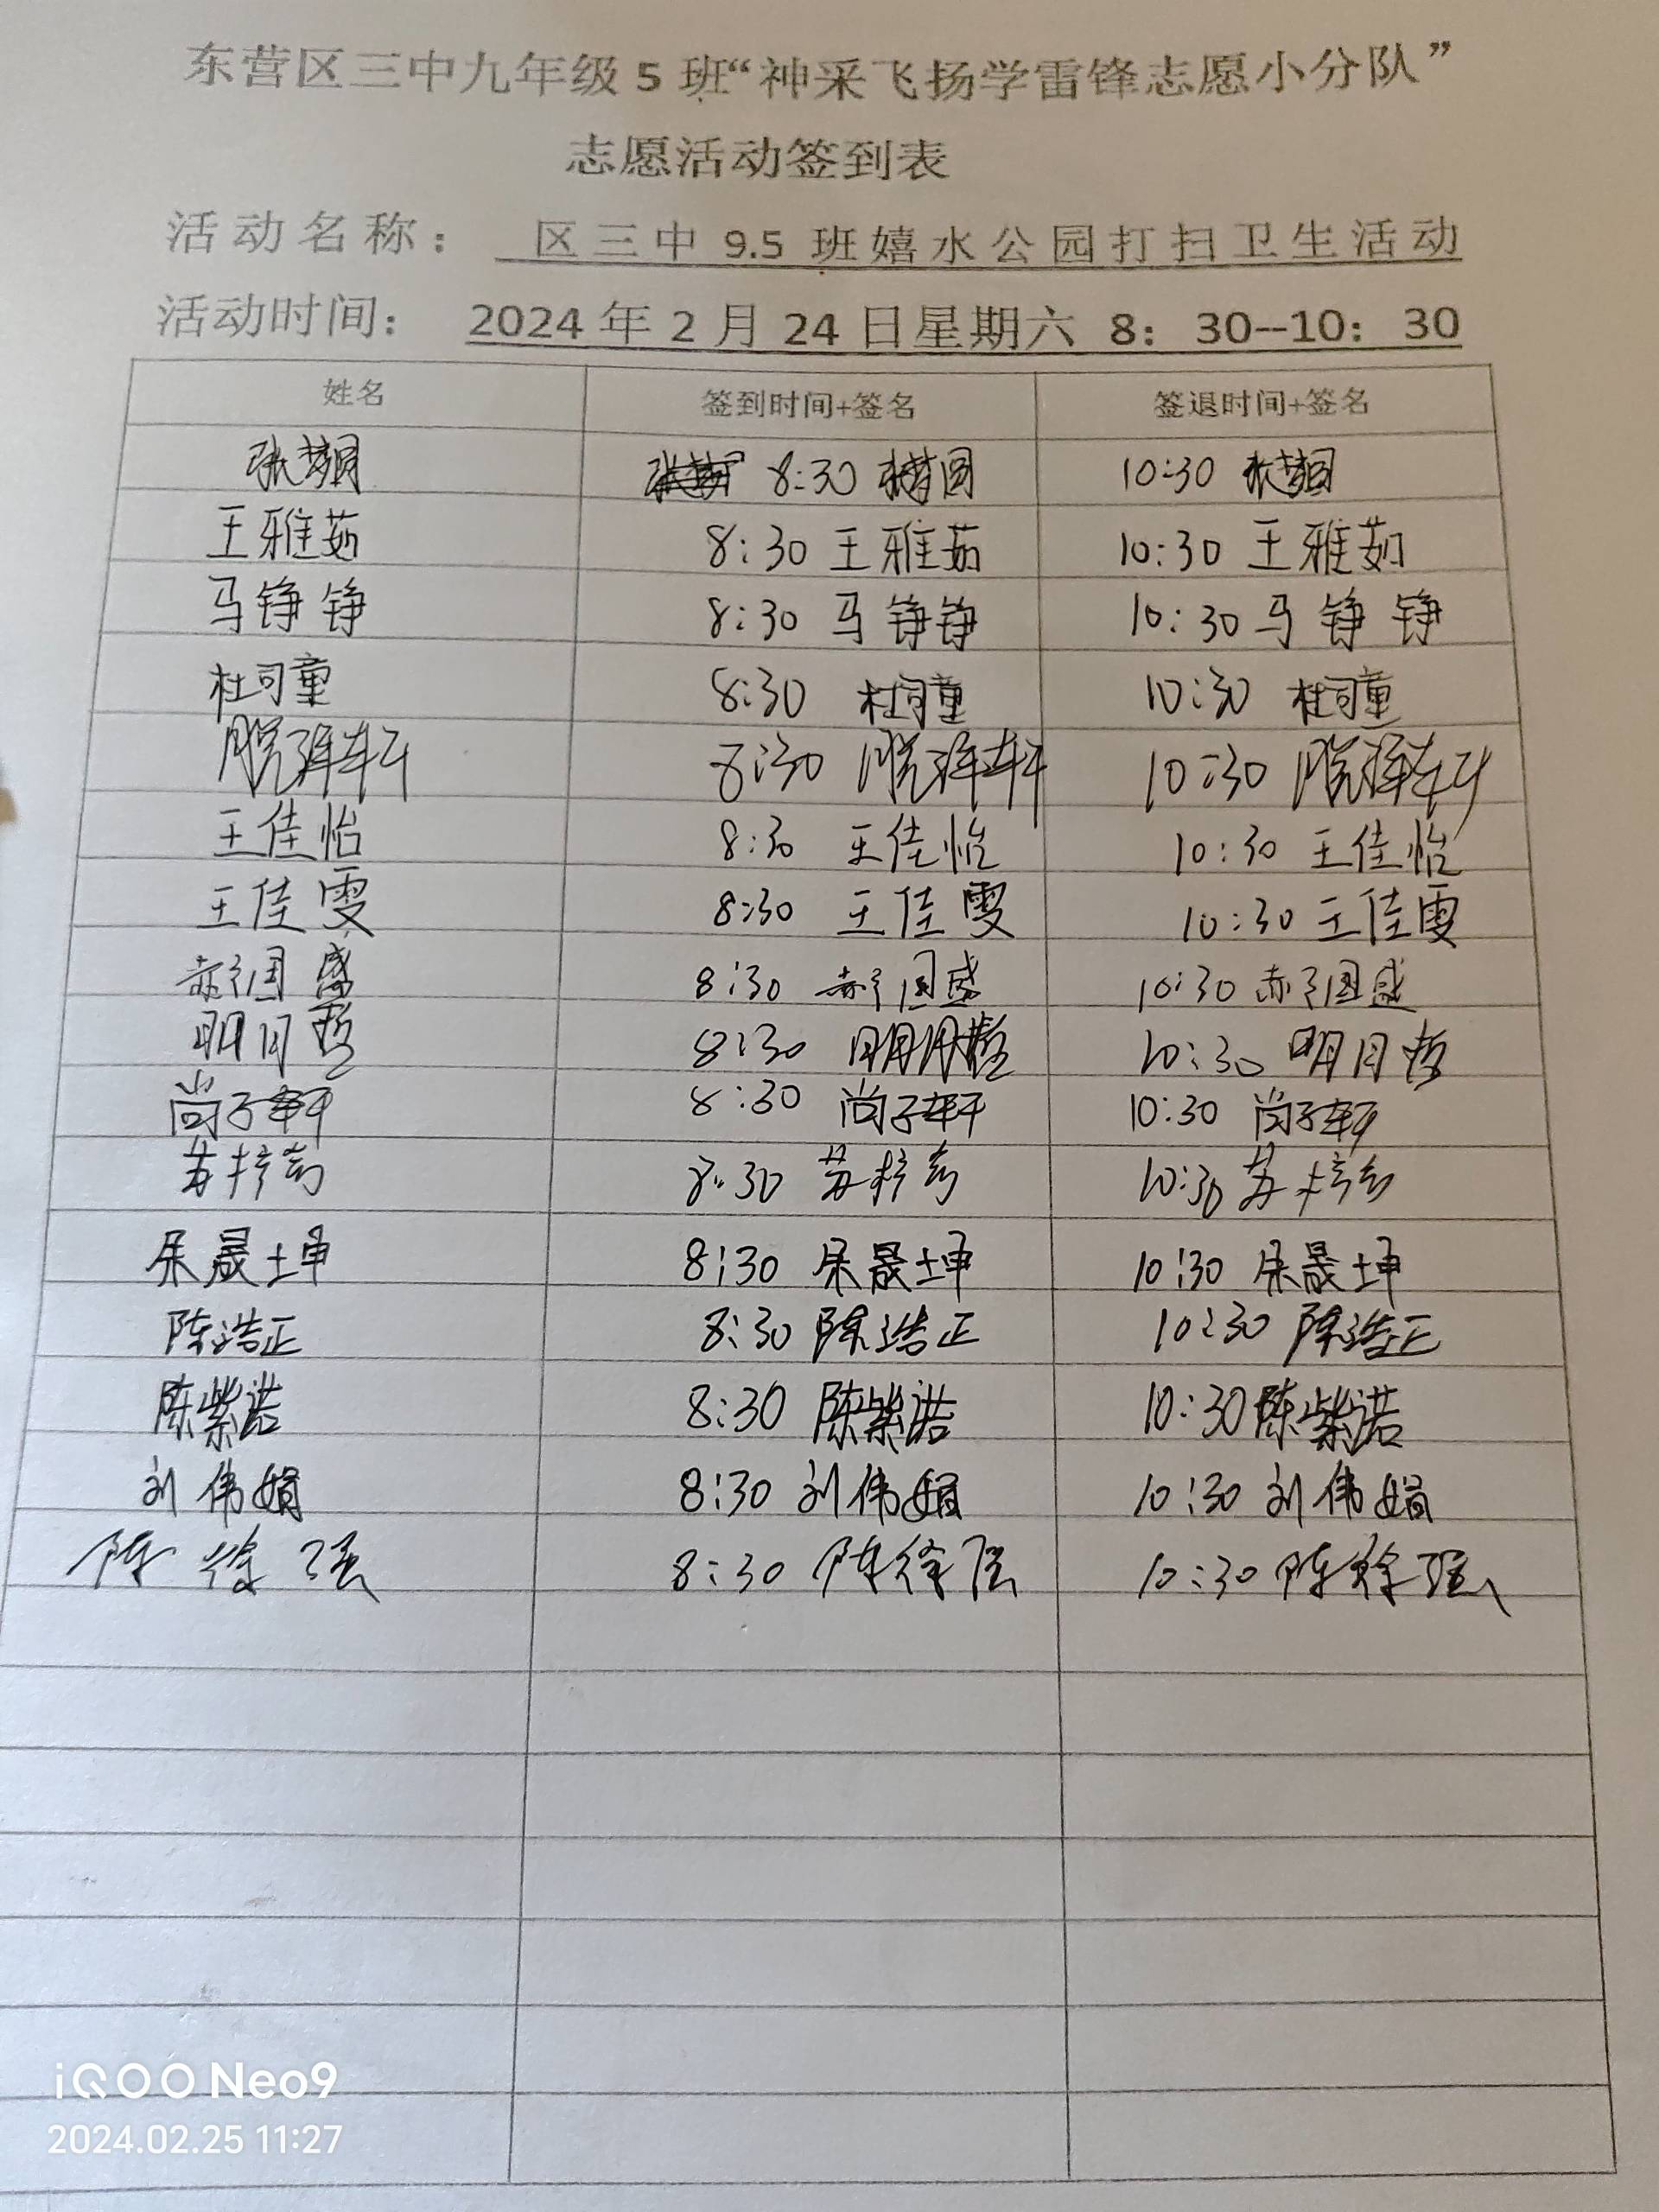 东营区三中九年级5班“神采飞扬学雷锋志愿小分队”
志愿活动签到表
活动名称: 区三中9.5班嬉水公园打扫卫生活动
活动时间: 2024年2月24日星期六 8:30--10:30
姓名 签到时间+签名 签退时间+签名
张梦圆 8:30 张梦圆 10:30 张梦圆
王雅茹 8:30 王雅茹 10:30 王雅茹
马铮铮 8:30 马铮铮 10:30 马铮铮
杜司童 8:30 杜司童 10:30 杜司童
8:30 10:30
王佳怡 8:30 王佳怡 10:30 王佳怡
王佳雯 8:30 王佳雯 10:30 王佳雯
国盛 8:30 国盛 10:30 国盛
明月哲 8:30 明月哲 10:30 明月哲
尚子轩 8:30 尚子轩 10:30 尚子轩
苏梓 8:30 苏梓 10:30 苏梓
晟坤 8:30 晟坤 10:30 晟坤
陈浩正 8:30 陈浩正 10:30 陈浩正
陈紫诺 8:30 陈紫诺 10:30 陈紫诺
刘伟娟 8:30 刘伟娟 10:30 刘伟娟
陈徐强 8:30 陈徐强 10:30 陈徐强
iQOO Neo9
2024.02.25 11:27